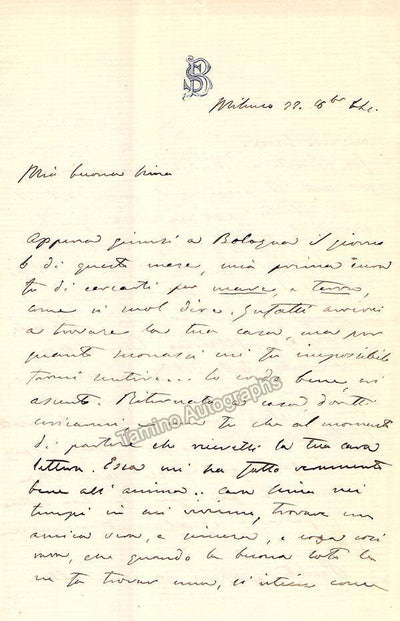 SB
Milano 22. 8bre
Mia buona Nina
Appena giunsi a Bologna il giorno
6 di questo mese, mia prima cura
fu di cercarti per mare, e terra,
come si suol dire. Infatti arrivai
a trovare la tua casa, ma per
quanto suonassi mi fu impossibile
bene, eri
assente. Ritornata a casa, dovetti
coricarmi e non fu che al momento
di partire che ricevetti la tua cara
lettera. Essa mi ha fatto veramente
bene all'anima.. cara Nina nei
tempi in cui viviamo, trovare un
amica vera, e sincera, e cosa così
rara, che quando la buona
ne fa trovar una, si
Tamino Autographs